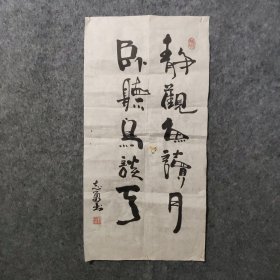 静觀魚讀月
臥聽鳥談天